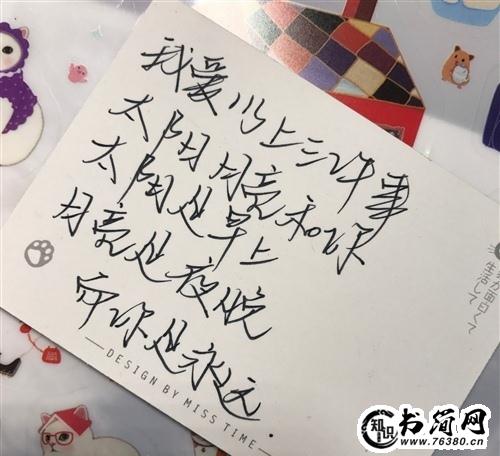 我爱世上三件事
太阳月亮和你
太阳是早上
月亮是夜晚
而你是永远.
DESIGN BY MISS TIME
知识 书简网
www.76380.cn